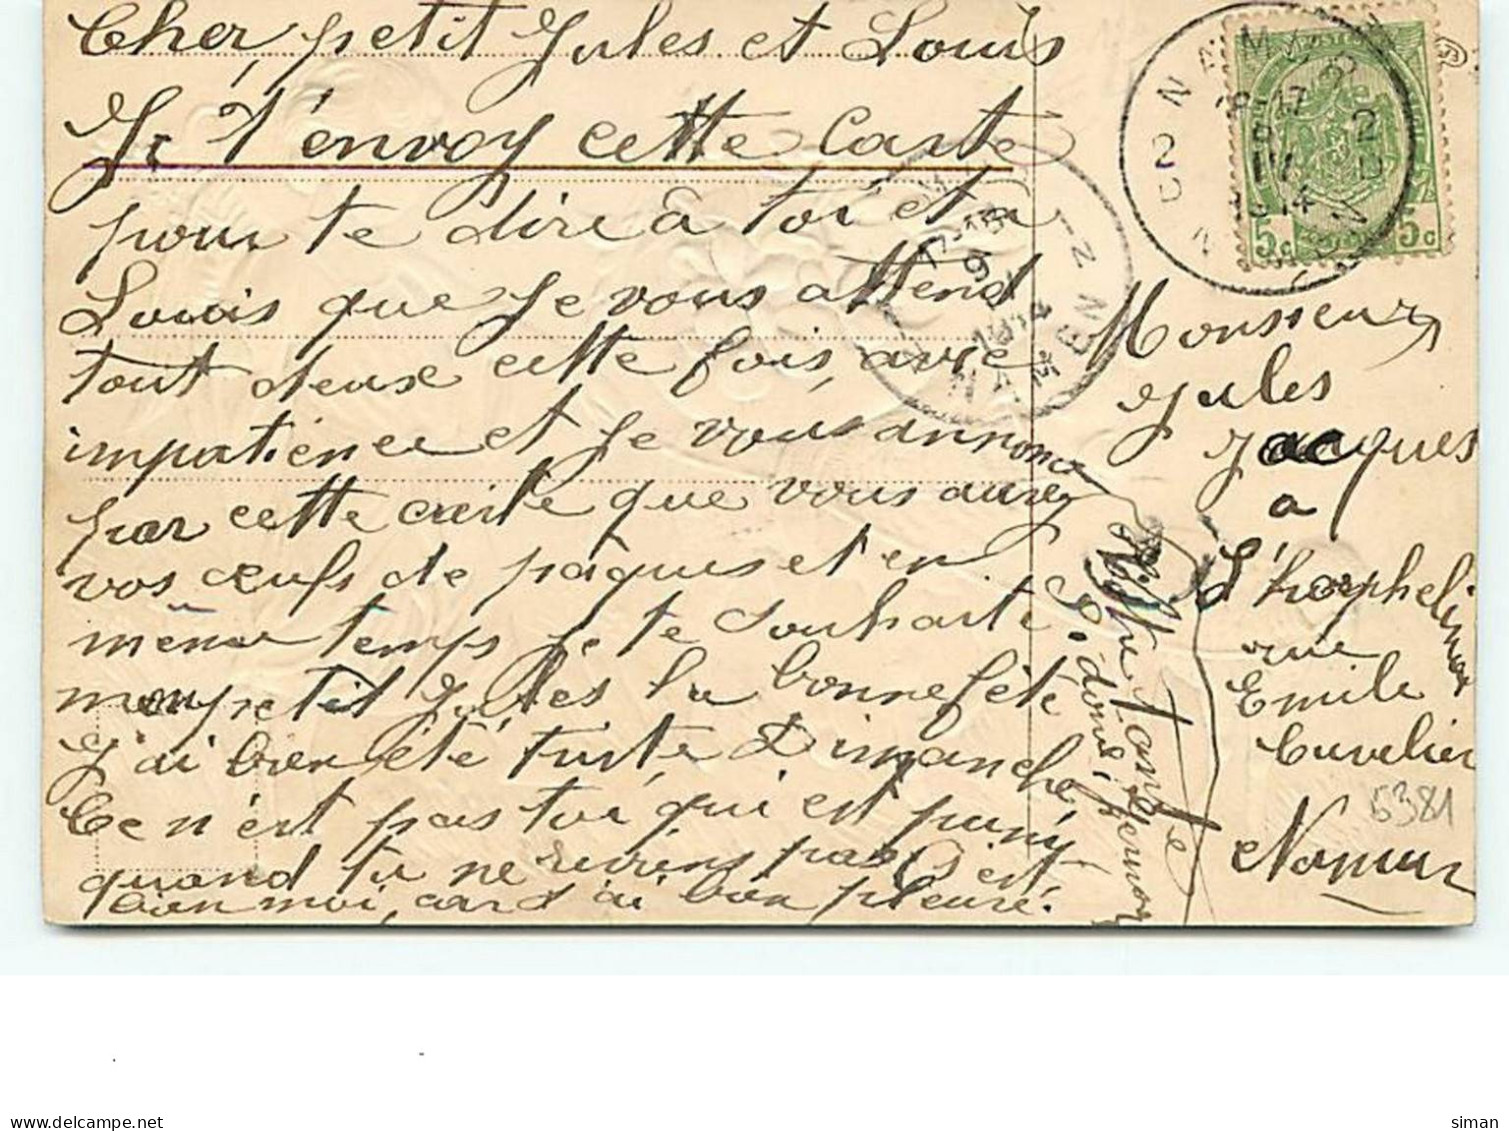 Cher petit Jules et Louis
Je t'envoy cette carte
pour te dire à toi et a
Louis que je vous attend
tout deux cette fois, avec
impatience et je vous annonce
par cette carte que vous aurez
vos œufs de paques et en
même temps je te souhaite
mon petit Jules la bonne fête
J'ai bien été triste Dimanche
Ce n'est pas toi qui est puny
quand tu ne reviens pas C'est
bien moi, car j'ai bien pleuré.
Votre tante
Sidonie
NAMUR
2
5c 5c
NAMUR
Monsieur
Jules
Jacques
a
L'horphelinat
rue
Emile
Cuvelier
Namur
5381
delcampe.net
siman